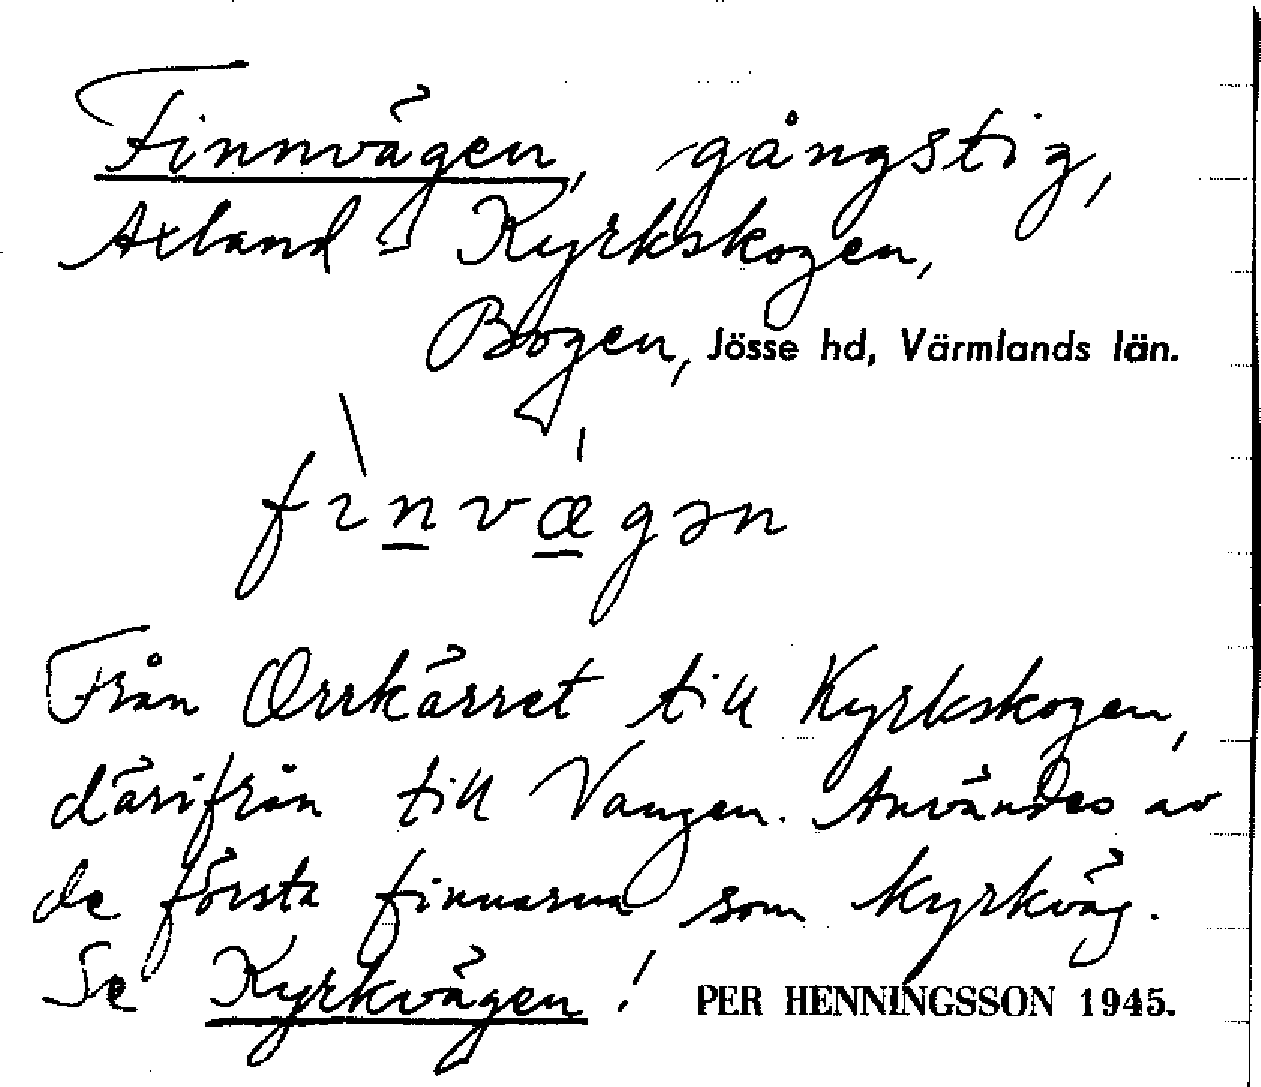 Finnvägen, gångstig,
Axland o Kyrkskogen,
Bogen, Jösse hd, Värmlands län.
fìnvægən
Från Orrkärret till Kyrkskogen,
därifrån till Vangen. Användes av
de första finnarna som kyrkväg.
Se Kyrkvägen! PER HENNINGSSON 1945.